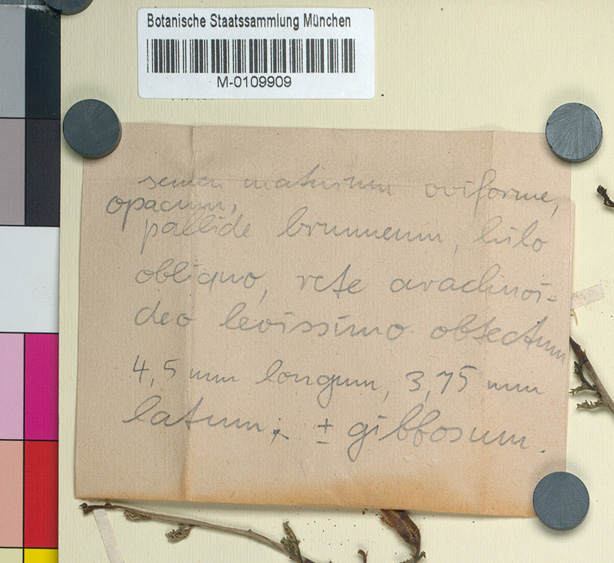 Botanische Staatssammlung München
M-0109909
semen maturum oviforme,
opacum,
pallide brunneum, hilo
obliquo, rete arachnoi-
deo levissimo obtectum
4,5 mm longum, 3,75 mm
latum, ± gibbosum.